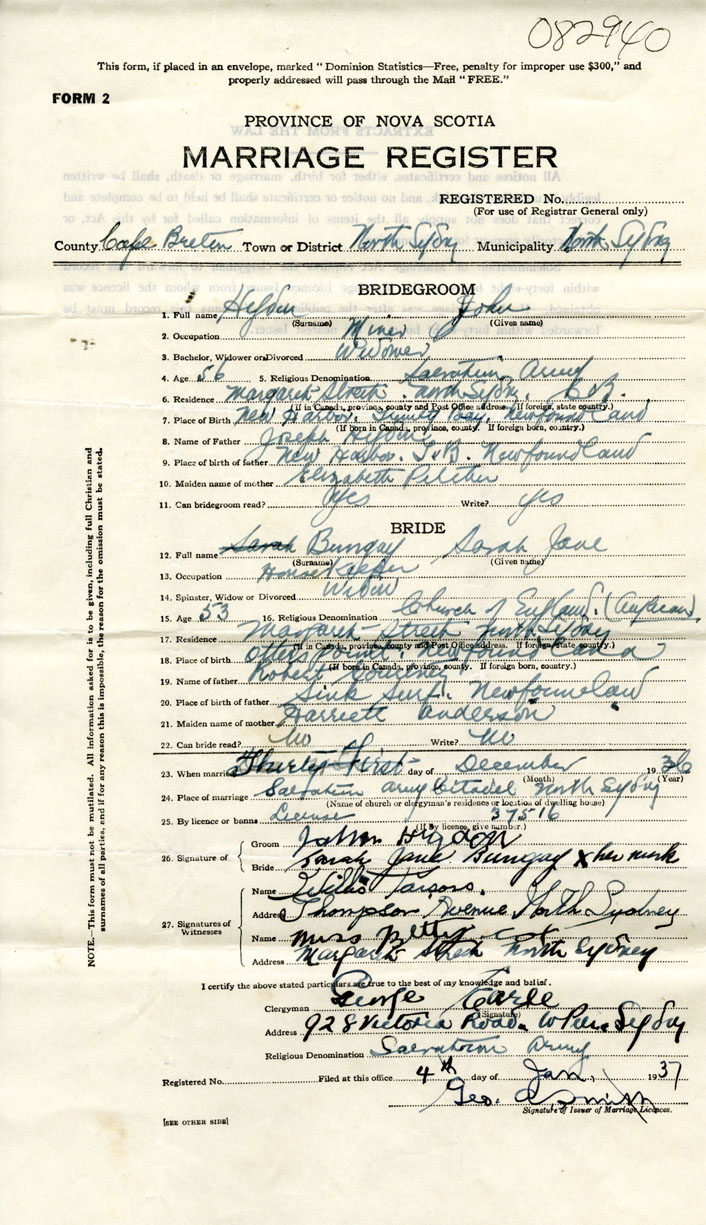 082940
This form, if placed in an envelope, marked "Dominion Statistics—Free, penalty for improper use $300," and
properly addressed will pass through the Mail "FREE."
FORM 2
PROVINCE OF NOVA SCOTIA
MARRIAGE REGISTER
REGISTERED No.
(For use of Registrar General only)
County Cape Breton Town or District North Sydney Municipality North Sydney
BRIDEGROOM
1. Full name John
(Surname) (Given name)
2. Occupation Miner
3. Bachelor, Widower or Divorced Widower
4. Age 56 5. Religious Denomination Salvation Army
6. Residence Margaret Street. North Sydney. C.B.
(If in Canada, province, county and Post Office address. If foreign, state country.)
7. Place of Birth New Harbor, Bay, Newfoundland
(If born in Canada, province, county. If foreign born, country.)
8. Name of Father Joseph
9. Place of birth of father New Harbor. T.B. Newfoundland
10. Maiden name of mother Elizabeth
11. Can bridegroom read? Yes Write? Yes
BRIDE
12. Full name Sarah Bungay Sarah Jane
(Surname) (Given name)
13. Occupation House Keeper
14. Spinster, Widow or Divorced Widow
15. Age 53 16. Religious Denomination Church of England. (Anglican)
17. Residence Margaret Street North Sydney
(If in Canada, province, county and Post Office address. If foreign, state country.)
18. Place of birth Otters Point,
(If born in Canada, province, county. If foreign born, country.)
19. Name of father Robert Courtney
20. Place of birth of father Newfoundland
21. Maiden name of mother Harriett Anderson
22. Can bride read? No Write? No
23. When married Thirty-First day of December 1936
(Month) (Year)
24. Place of marriage Salvation Army Citadel North Sydney
(Name of church or clergyman's residence or location of dwelling house)
25. By licence or banns License 37516
(If by licence, give number.)
26. Signature of
Groom John Higdon
Bride Sarah Jane Bungay X her mark
27. Signatures of Witnesses
Name Willis Parsons.
Address Thompson Avenue North Sydney
Name Miss Betty
Address Margaret Street North Sydney
I certify the above stated particulars are true to the best of my knowledge and belief.
Clergyman George Earle
(Signature)
Address 928 Victoria Road. W Pier Sydney
Religious Denomination Salvation Army
Registered No. Filed at this office 4th day of Jan. 1937
Geo. Smith
Signature of Issuer of Marriage Licences.
[SEE OTHER SIDE]
NOTE.—This form must not be mutilated. All information asked for is to be given, including full Christian and
surnames of all parties, and if for any reason this is impossible, the reason for the omission must be stated.